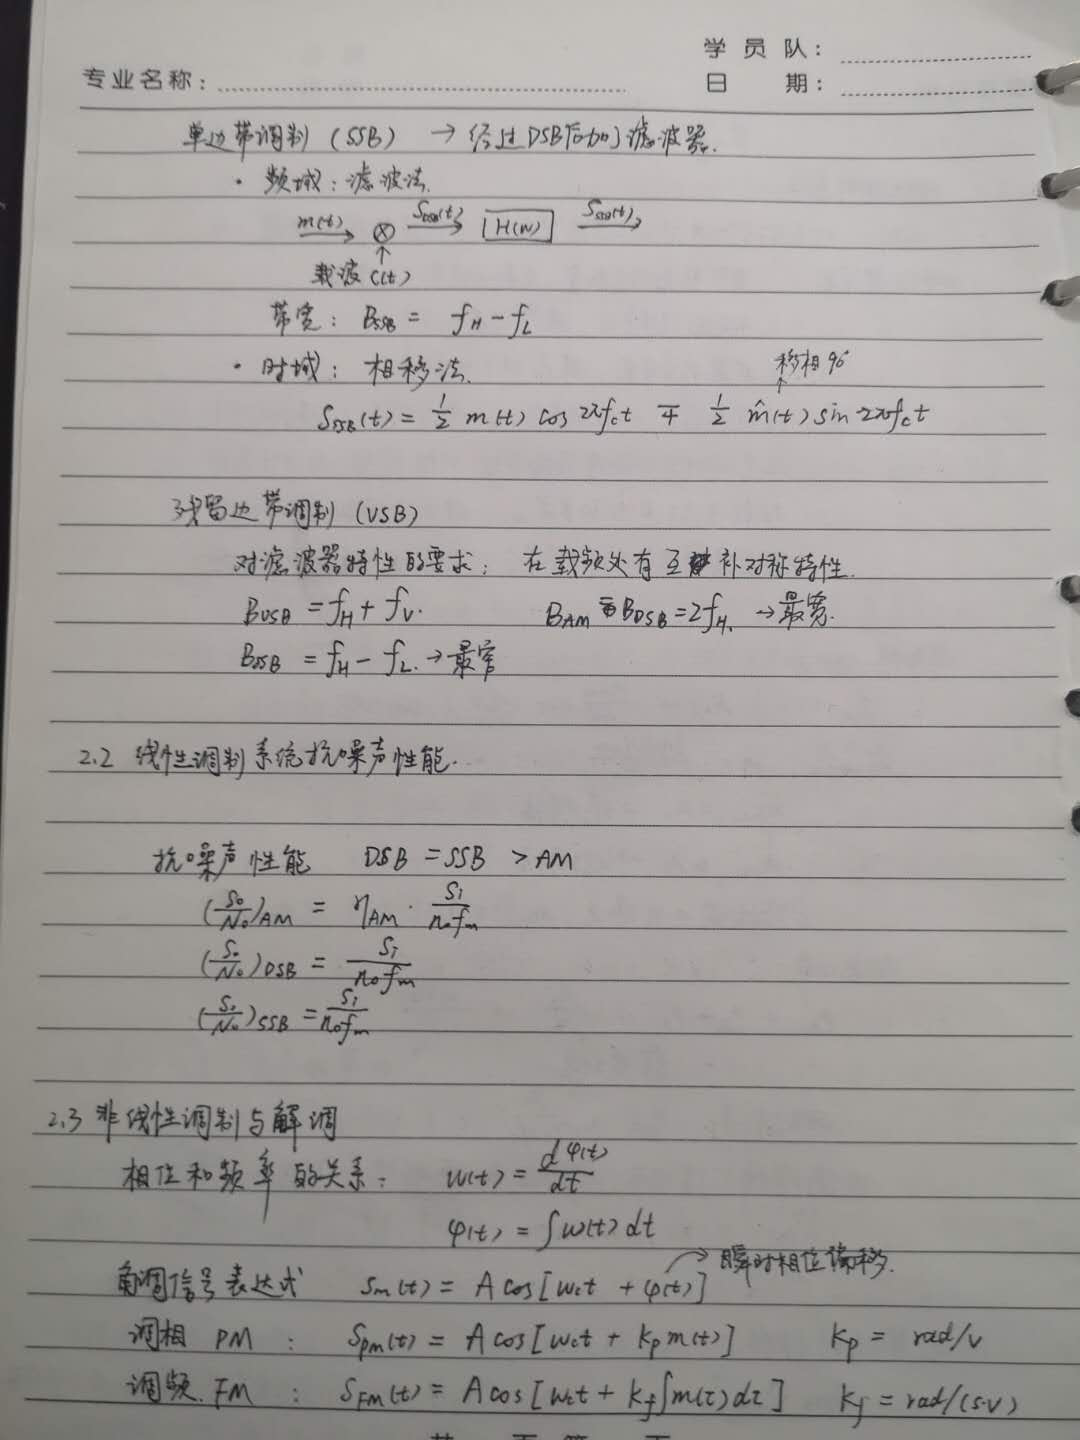 学 员 队：
专业名称：
日 期：
单边带调制 (SSB) → 经过DSB后加了滤波器.
· 频域：滤波法.
m(t) → ⊗ S_DSB(t) → H(w) S_SSB(t) →
↑
载波 C(t)
带宽： B_SSB = f_H - f_L
· 时域： 相移法. 移相 90°
↑
S_SSB(t) = 1/2 m(t) cos 2πf_c t ∓ 1/2 m̂(t) sin 2πf_c t
残留边带调制 (VSB)
对滤波器特性的要求： 在载频处有互补对称特性.
B_VSB = f_H + f_V. B_AM = B_DSB = 2f_H. → 最宽.
B_SSB = f_H - f_L. → 最窄
2.2 线性调制系统抗噪声性能.
抗噪声性能 DSB = SSB > AM
(So/No)_AM = η_AM · Si/(n₀f_m)
(So/No)_DSB = Si/(n₀f_m)
(So/No)_SSB = Si/(n₀f_m)
2.3 非线性调制与解调
相位和频率的关系： w(t) = dφ(t)/dt
φ(t) = ∫w(t) dt
角调信号表达式 Sm(t) = A cos[w_c t + φ(t)] → 瞬时相位偏移.
调相 PM ： S_PM(t) = A cos[w_c t + K_p m(t)] K_p = rad/v
调频. FM ： S_FM(t) = A cos[w_c t + K_f ∫m(τ) dτ] K_f = rad/(s·v)